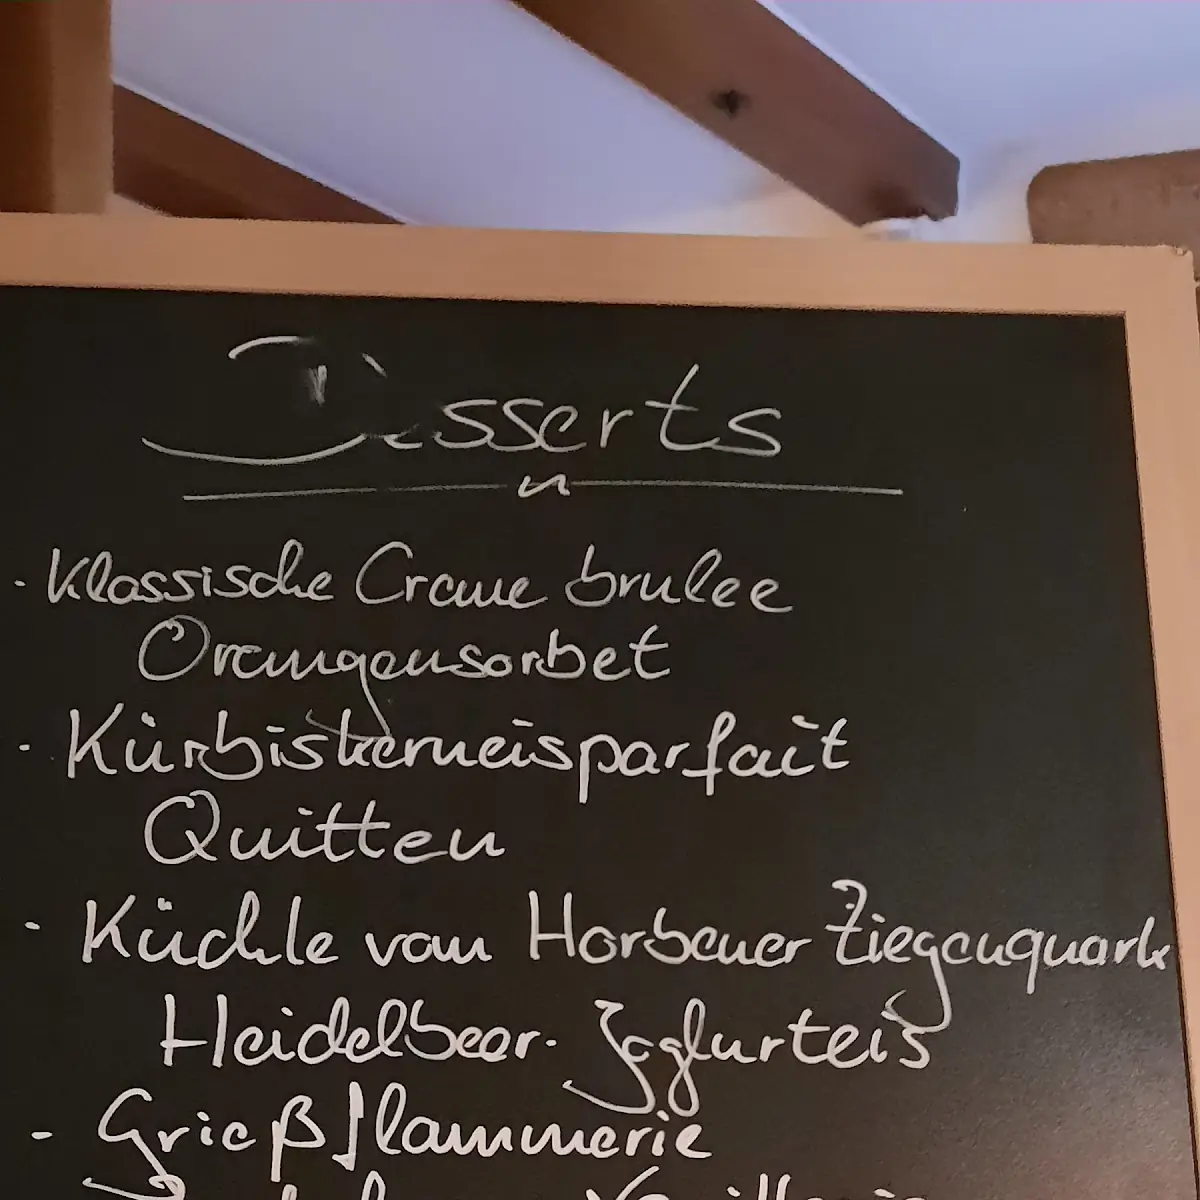 Desserts
- Klassische Creme brulee
Orangensorbet
- Kürbiskerneisparfait
Quitten
- Küchle vom Horbener Ziegenquark
Heidelbeer-Joghurteis
- Grießflammerie